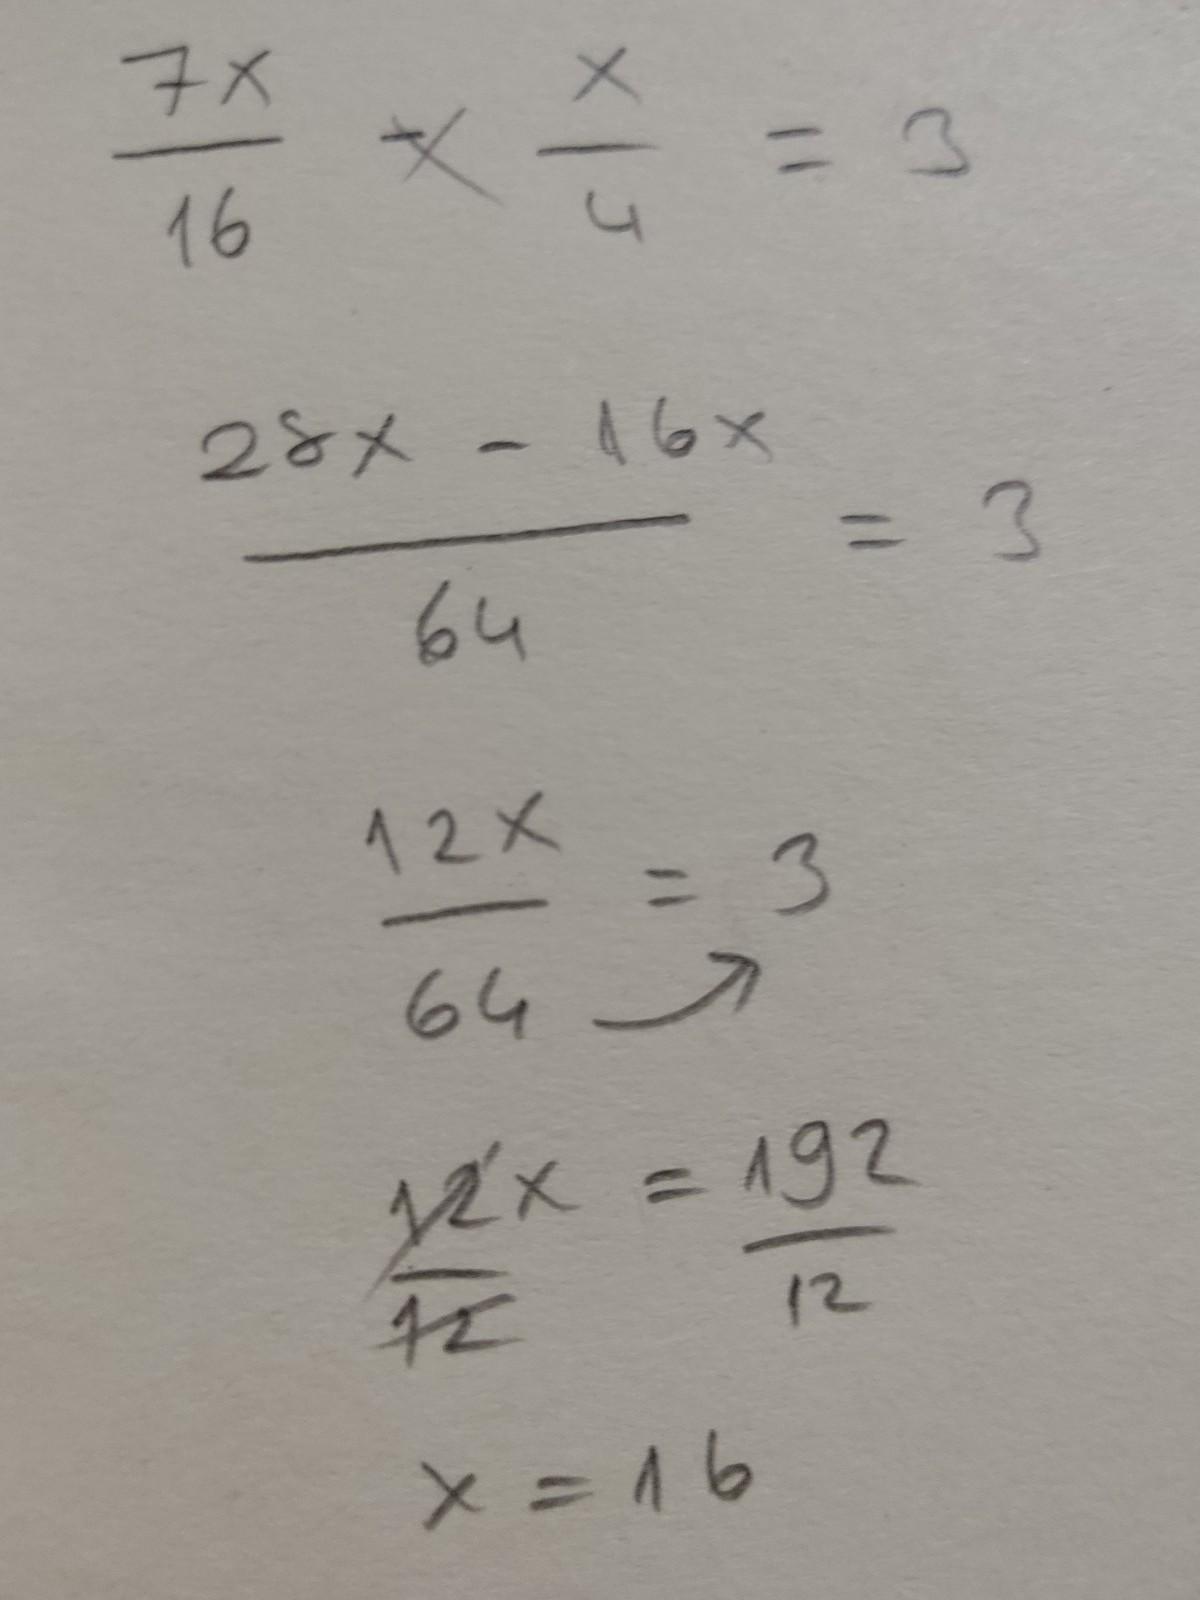 7x/16 - x/4 = 3
28x - 16x / 64 = 3
12x/64 = 3
12x/12 = 192/12
x = 16